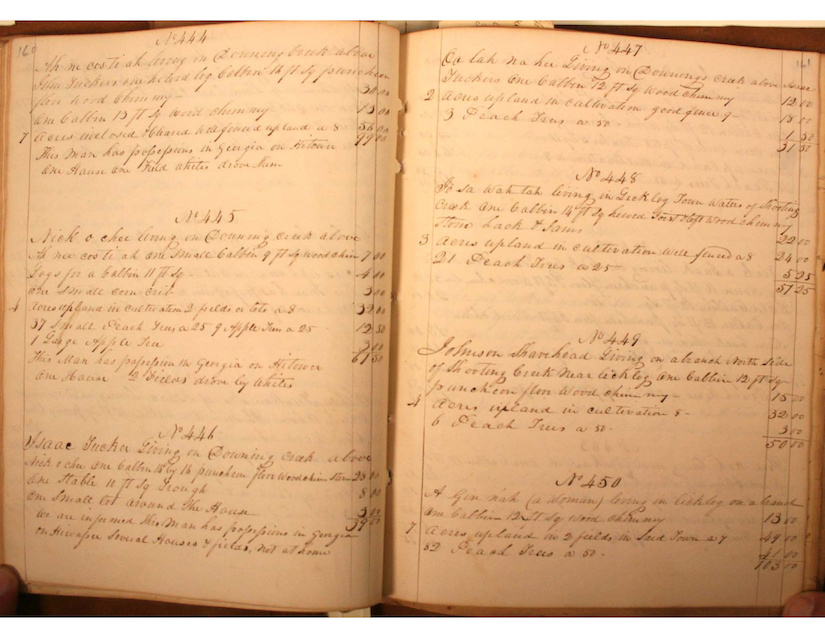 160
No 444
Ah ne cos ti ah living on Downing Creek above
John Tuckers one hewed log Cabbin 14 ft Sq puncheon
floor wood Chimney 30 00
One Cabbin 13 ft Sq wood chimney 13 00
7 Acres inclosed & cleared well fenced upland a 8 56 00
99 00
This Man has possessions in Georgia on
One House One Field whites drove him
No 445
Nick o chee living on Downing Creek above
Ah nee cos ti ah one Small Cabbin 9 ft Sq wood Chim 7 00
Logs for a Cabbin 11 ft Sq 4 00
One Small corn crib 3 00
4 Acres upland in cultivation 2 fields or lots a 8 32 00
37 Small Peach Trees a 25 9 Apple Trees a 25 12 50
1 Large Apple Tree 3 00
61 50
This Man has possession in Georgia on
One House 2 Fields drove by whites
No 446
Isaac Tucker Living on Downing Creek above
Nick o chee One Cabbin 16 by 14 puncheon floor Wood chim 28 00
One Stable 11 ft Sq Trough 8 00
One Small lot around the House 3 00
39 00
We are informed this Man has possessions in Georgia
on Several Houses & fields, not at home
161
No 447
Ca tah na hee Living on Downings Creek above Isaac
Tuckers One Cabbin 12 ft Sq wood Chimney 12 00
2 Acres upland in cultivation good fence 9 18 00
3 Peach Trees a 50 1 50
31 50
No 448
To sa wah tah living in Licklog Town Waters of Shooting
Creek One Cabbin 14 ft Sq hewed Joist loft Wood chimny
stone back & Jams 22 00
3 Acres upland in cultivation Well fenced a 8 24 00
21 Peach Trees a 25 5 25
51 25
No 449
Johnson Shavehead Living on a branch North Side
of Shooting Creek Near licklog One Cabbin 12 ft Sq
puncheon floor Wood chimny 15 00
4 Acres upland in cultivation 8 32 00
6 Peach Trees a 50 3 00
50 00
No 450
A Gin nah (a Woman) living on licklog on a branch
One Cabbin 12 ft Sq Wood chimny 13 00
7 Acres upland in 2 fields in Said Town a 7 49 00
82 Peach Trees a 50 41 00
103 00